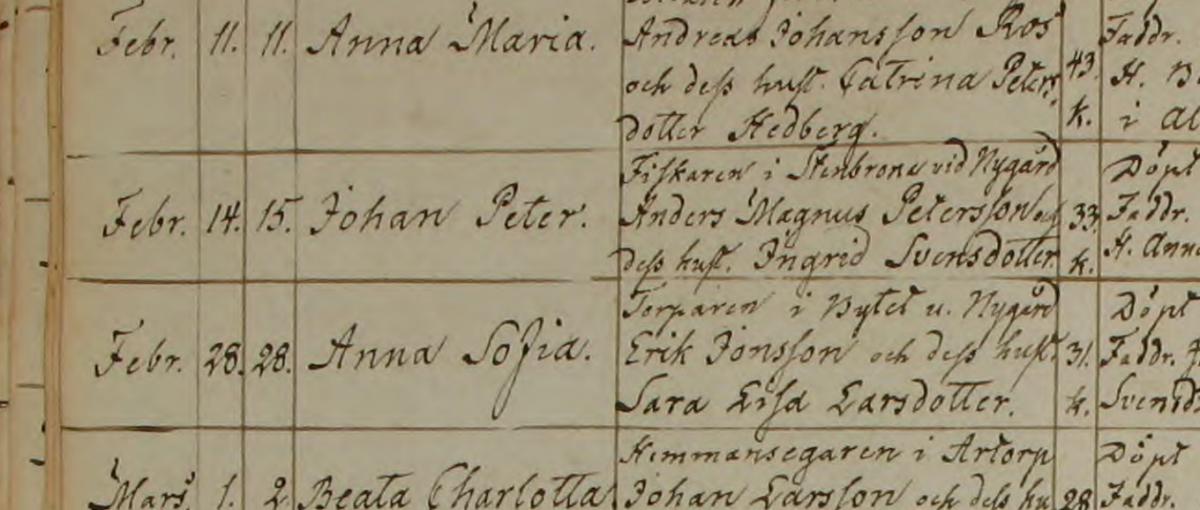 Febr. 11. 11. Anna Maria. Andreas Johansson Ros 43. Faddr.
och dess hust. Catrina Peters k. H.
dotter Hedberg. i Al
Febr. 14. 15. Johan Peter. Fiskaren i Stenbrona vid Nygård 33. Döpt
Anders Magnus Petersson och k. Faddr.
dess hust. Ingrid Svensdotter. H. Anna
Febr. 28. 28. Anna Sofia. Torparen i Bytet u. Nygård 31. Döpt
Erik Jonsson och dess hust. k. Faddr.
Sara Lisa Larsdotter. Svensd
Mars 1. 2 Beata Charlotta Hemmansegaren i Artorp 28 Döpt
Johan Larsson och dess hu Faddr.